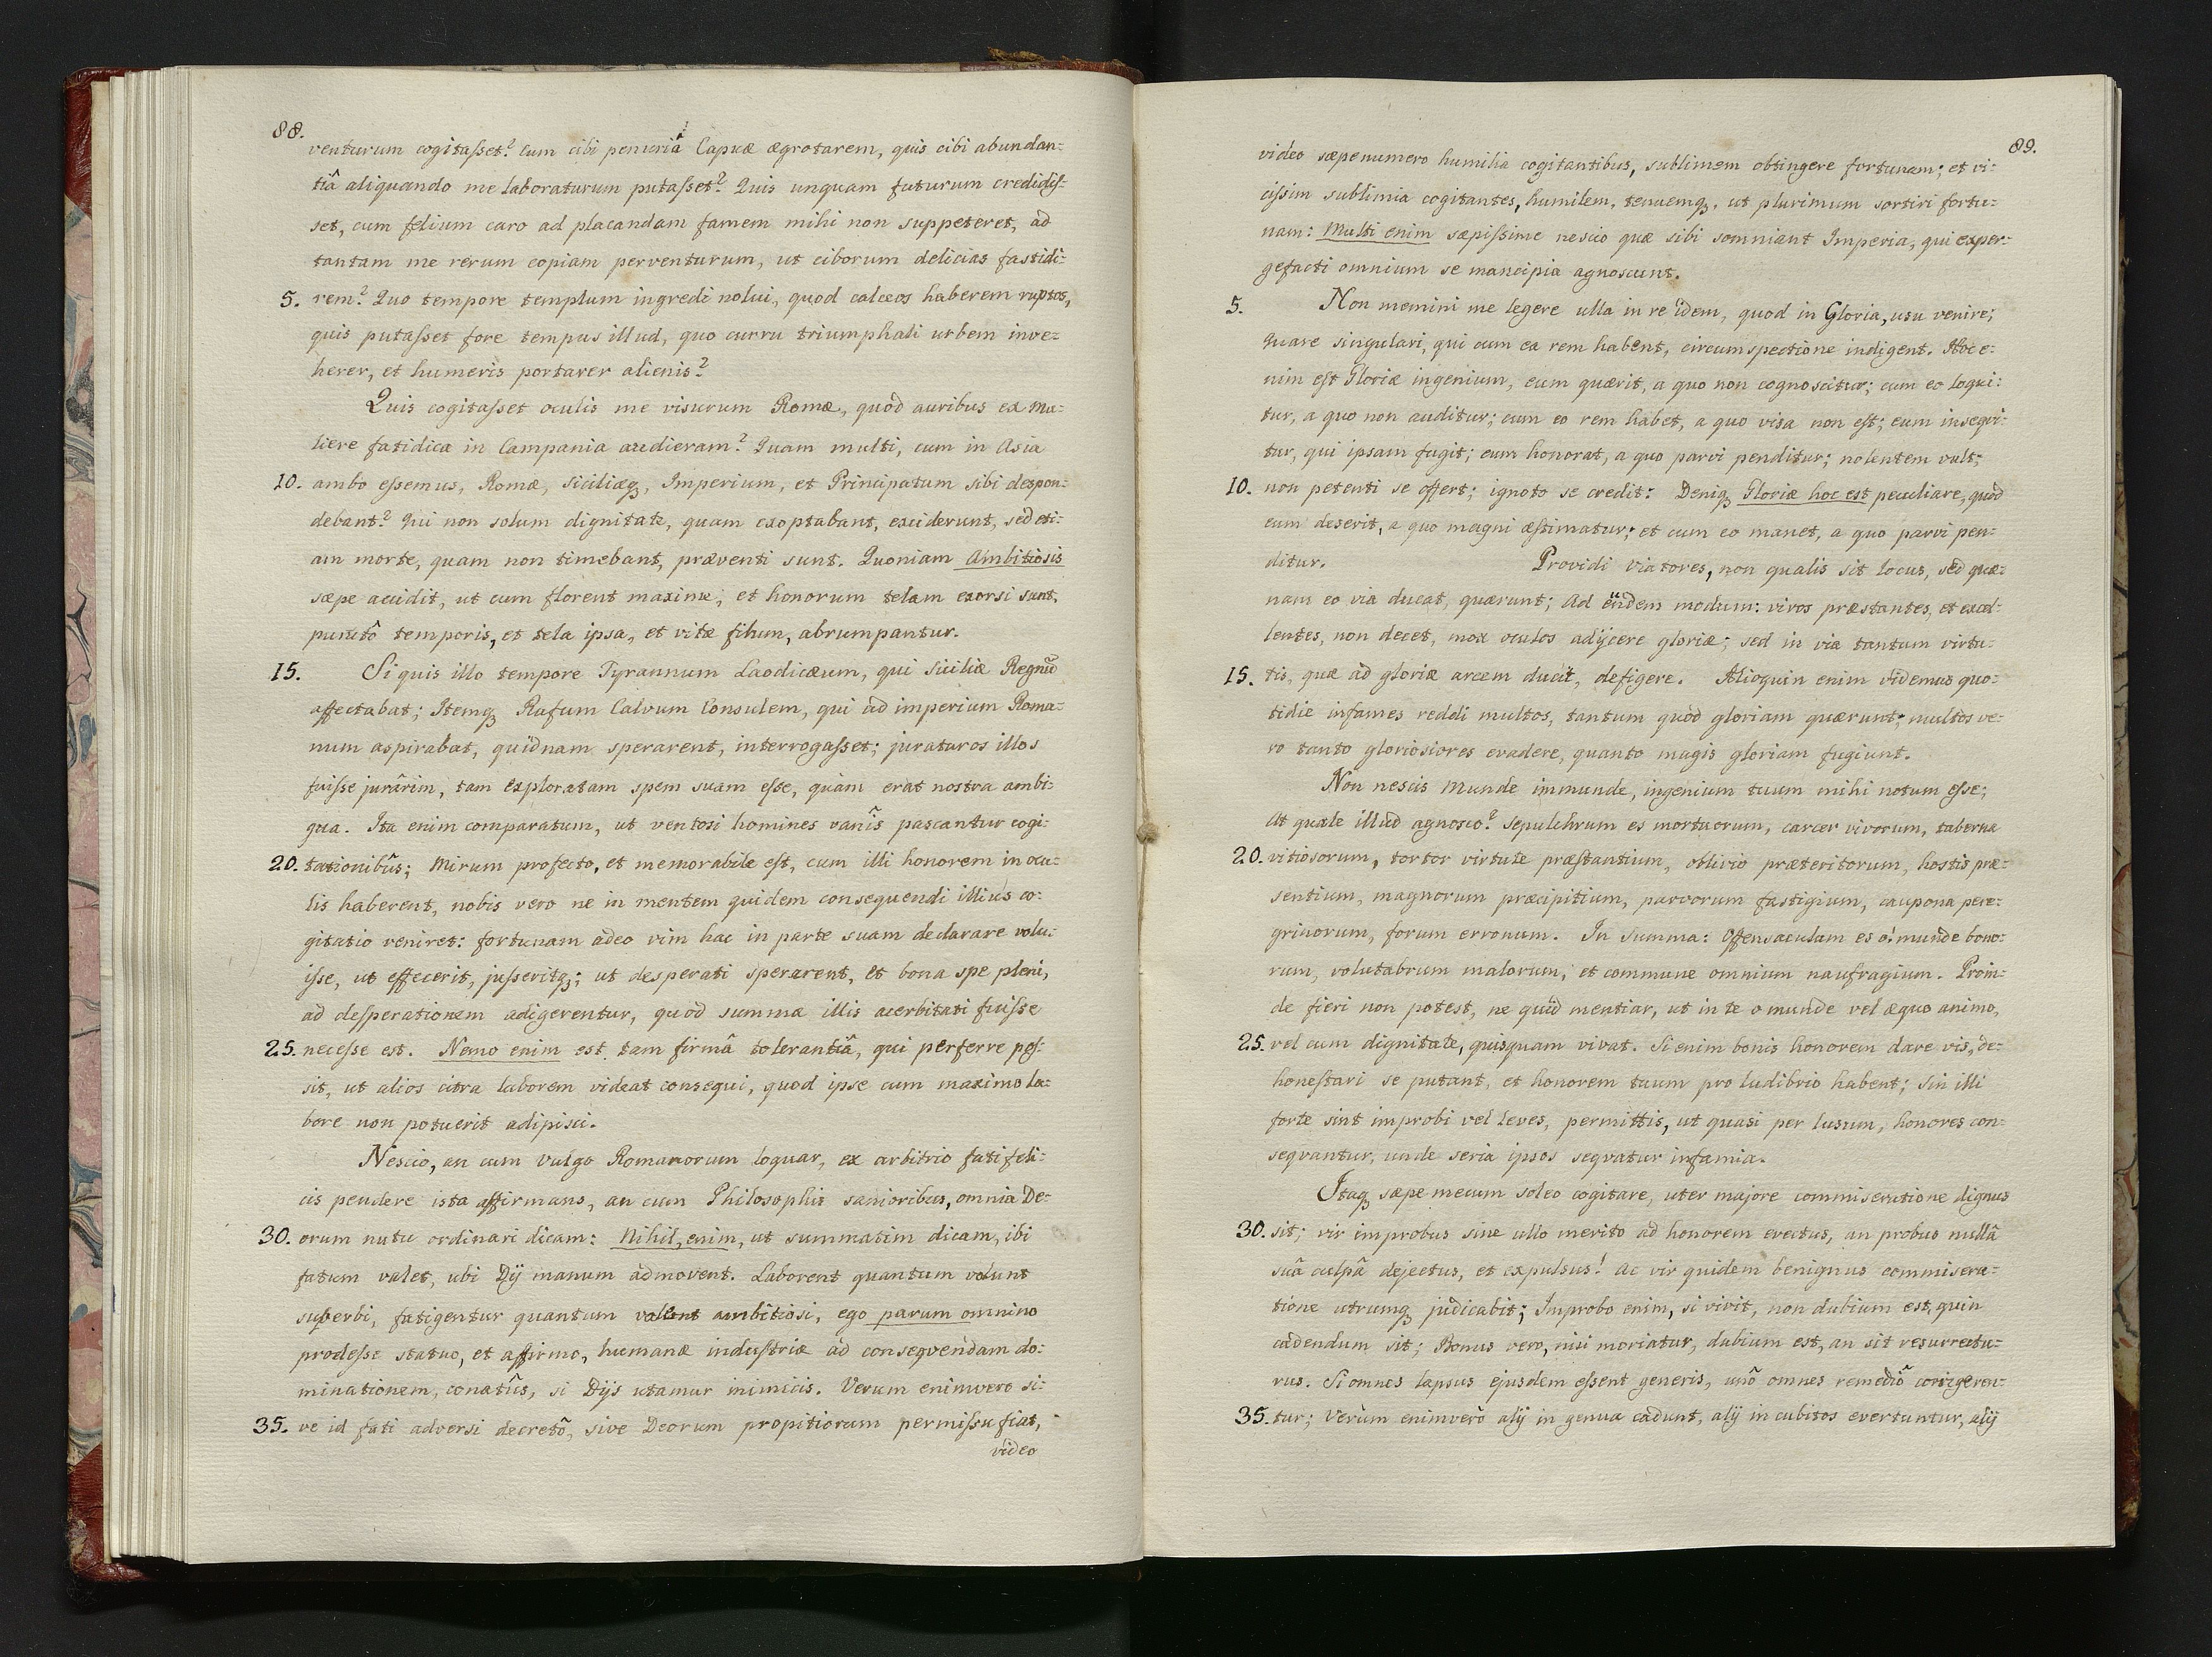 88.
venturum cogitaſset? Cum cibi penuriâ Capuæ ægrotarem, quis cibi abundan:
tiâ aliquando me laboraturum putaſset? Quis unquam futurum credidiſ:
set, cum felium caro ad placandam famem mihi non suppeteret, ad
tantam me rerum copiam perventurum, ut ciborum delicias fastidi:
5. rem? Quo tempore templum ingredi nolui, quod calceos haberem ruptos,
quis putaſset fore tempus illud, quo curru triumphali urbem inve:
herer, et humeris portarer alienis?
Quis cogitaſset oculis me visurum Romæ, quod auribus ex mu:
liere fatidica in Campania audieram? Quam multi, cum in Asia
10. ambo eſsemus, Romæ, Siciliæq₃, Imperium, et Principatum sibi despon:
debant? Qui non solum dignitate, quam exoptabant, exciderunt, sed eti:
am morte, quam non timebant, præventi sunt. Quoniam Ambitiosis
sæpe accidit, ut cum florent maxime, et honorum telam exorsi sunt,
punctô temporis, et tela ipsa, et vitæ filum, abrumpantur.
15. Si quis illo tempore Tyrannum Laodicæum, qui Siciliæ Regnũ
affectabat; Itemq₃ Rufum Calvum Consulem, qui ad imperium Roma:
num aspirabat, quidnam sperarent, interrogaſset; juraturos illos
fuiſse jurârim, tam exploratam spem suam eſse, quàm erat nostra ambi:
gua. Ita enim comparatum, ut ventosi homines vanîs pascantur cogi:
20. tationibûs; Mirum profecto, et memorabile eſt, cum illi honorem in ocu:
lis haberent, nobis vero ne in mentem quidem consequendi illius co:
gitatio veniret: fortunam adeo vim hac in parte suam declarare volu:
iſse, ut effecerit, juſseritq₃; ut desperati sperarent, et bona spe pleni,
ad deſperationem adigerentur, quod summæ illis acerbitati fuiſse
25. neceſse est. Nemo enim est tam firmâ tolerantiâ, qui perferre poſ:
sit, ut alios citra laborem videat consequi, quod ipse cum maximo la:
bore non potuerit adipisci.
Nescio, an cum vulgo Romanorum loquar, ex arbitrio fati feli:
cis pendere ista affirmans, an cum Philosophis sanioribus, omnia De:
30. orum nutu ordinari dicam: Nihil, enim, ut summatim dicam, ibi
fatum valet, ubi Dÿ manum admovent. Laborent quantum volunt
superbi, fatigentur quantum volent ambitiosi, ego parum omnino
prodeſse statuo, et affirmo, humanæ induſtriæ ad conseqvendam do:
minationem, conatûs, si Dÿs utamur inimicis. Verum enimvero si:
35. ve id fati adversi decretô, sive Deorum propitiorum permiſsu fiat,
video
89.
video sæpenumero humilia cogitantibus, sublimem obtingere fortunam; et vi:
ciſsim sublimia cogitantes, humilem, tenuemq₃, ut plurimum sortiri fortu:
nam: Multi enim sæpiſsime nescio quæ sibi somniant Imperia, qui exper:
gefacti omnium se mancipia agnoscunt.
5. Non memini me legere ulla in re idem, quod in Gloria, usu venire;
quare singulari, qui cum ea rem habent, circumspectione indigent. Hoc e:
nim eſt Gloriæ ingenium, eum quærit, a quo non cognoscitur; cum eo loqui:
tur, a quo non auditur; cum eo rem habet, a quo visa non eſt; eum inseqvi:
tur, qui ipsam fugit; eum honorat, a quo parvi penditur; nolentem vult;
10. non petenti se offert; ignoto se credit: Deniq₃ Gloriæ hoc est peculiare, quod
eum deserit, a quo magni æſtimatur; et cum eo manet, a quo parvi pen:
ditur. Providi viatores, non qualis sit locus, sed quæ:
nam eo via ducat, quærunt; Ad eũdem modum: viros præstantes, et excel:
lentes, non decet, mox oculos adÿcere gloriæ; sed in via tantum virtu:
15. tis, quæ ad gloriæ arcem ducit, defigere. Alioquin enim videmus quo:
tidie infames reddi multos, tantum quod gloriam quærunt; multos ve:
ro tanto gloriosiores evadere, quanto magis gloriam fugiunt.
Non nescis Munde immunde, ingenium tuum mihi notum eſse;
At quale illud agnosco? Sepulchrum es mortuorum, carcer vivorum, taberna
20. vitiosorum, tortor virtute præſtantium, oblivio præteritorum, hostis præ:
sentium, magnorum præcipitium, parvorum faſtigium, caupona pere:
grinorum, forum erronum. In Summa: Offensaculum es o! munde bono:
rum, volutabrum malorum, et commune omnium naufragium. Proin:
de fieri non potest, ne quid mentiar, ut in te o munde vel æquo animo,
25. vel cum dignitate, quisquam vivat. Si enim bonis honorem dare vis, de:
honeſtari se putant, et honorem tuum pro ludibrio habent; Sin illi
forte sint improbi vel leves, permittis, ut quasi per lusum, honores con:
seqvantur, unde seria ipsos seqvatur infamia.
Itaq₃ sæpe mecum soleo cogitare, uter majore commiseratione dignus
30. sit; vir improbus sine ullo merito ad honorem evectus, an probus nullâ
suâ culpâ dejectus, et expulsus! Ac vir quidem benignus commisera:
tione utrumq₃ judicabit; Improbo enim, si vivit, non dubium est, quin
cadendum sit; Bonus vero, nisi moriatur, dubium est, an sit resurrectu:
rus. Si omnes lapsus ejusdem eſsent generis, unô omnes remediô corrigeren:
35. tur; Verùm enimverò alÿ in genua cadunt, alÿ in cubitos evertuntur, alÿ